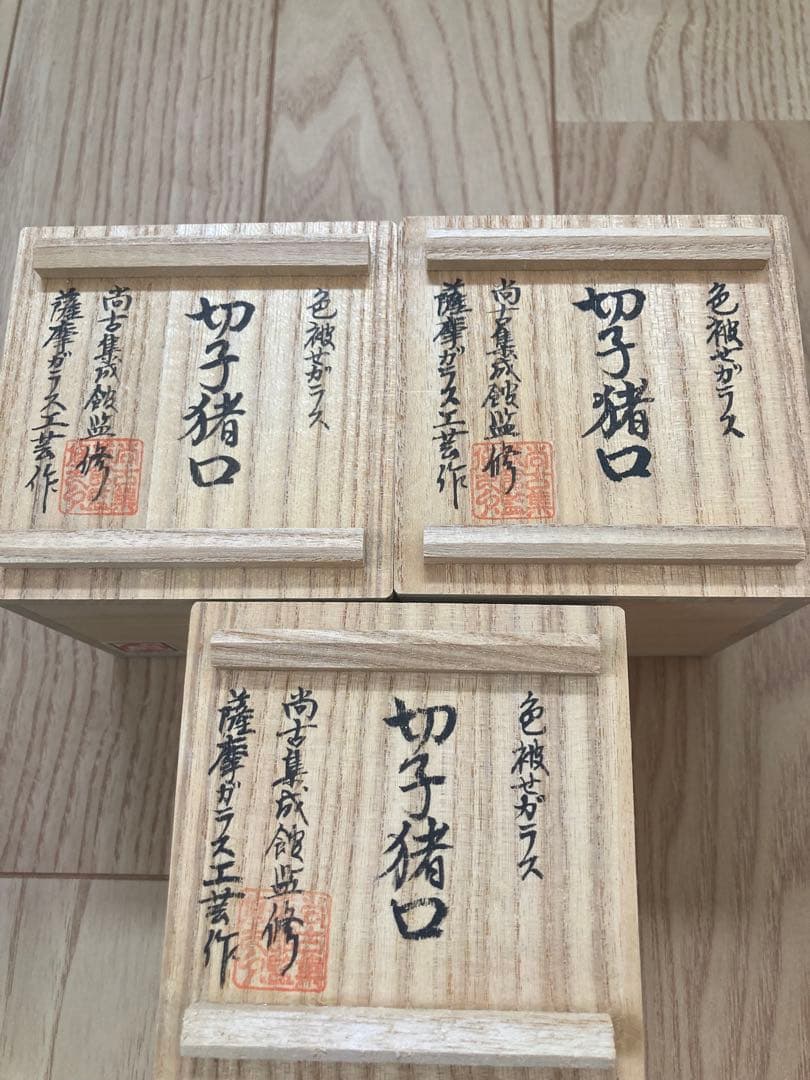 色被せガラス
切子猪口
尚古集成館監修
薩摩ガラス工芸作
色被せガラス
切子猪口
尚古集成館監修
薩摩ガラス工芸作
色被せガラス
切子猪口
尚古集成館監修
薩摩ガラス工芸作